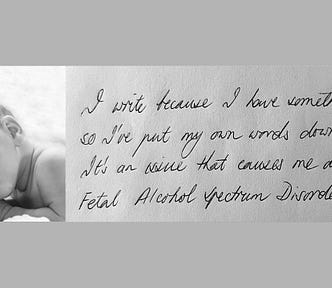 I write because I have someth
so I've put my own words down
It's an issue that causes me a
Fetal Alcohol Spectrum Disorde